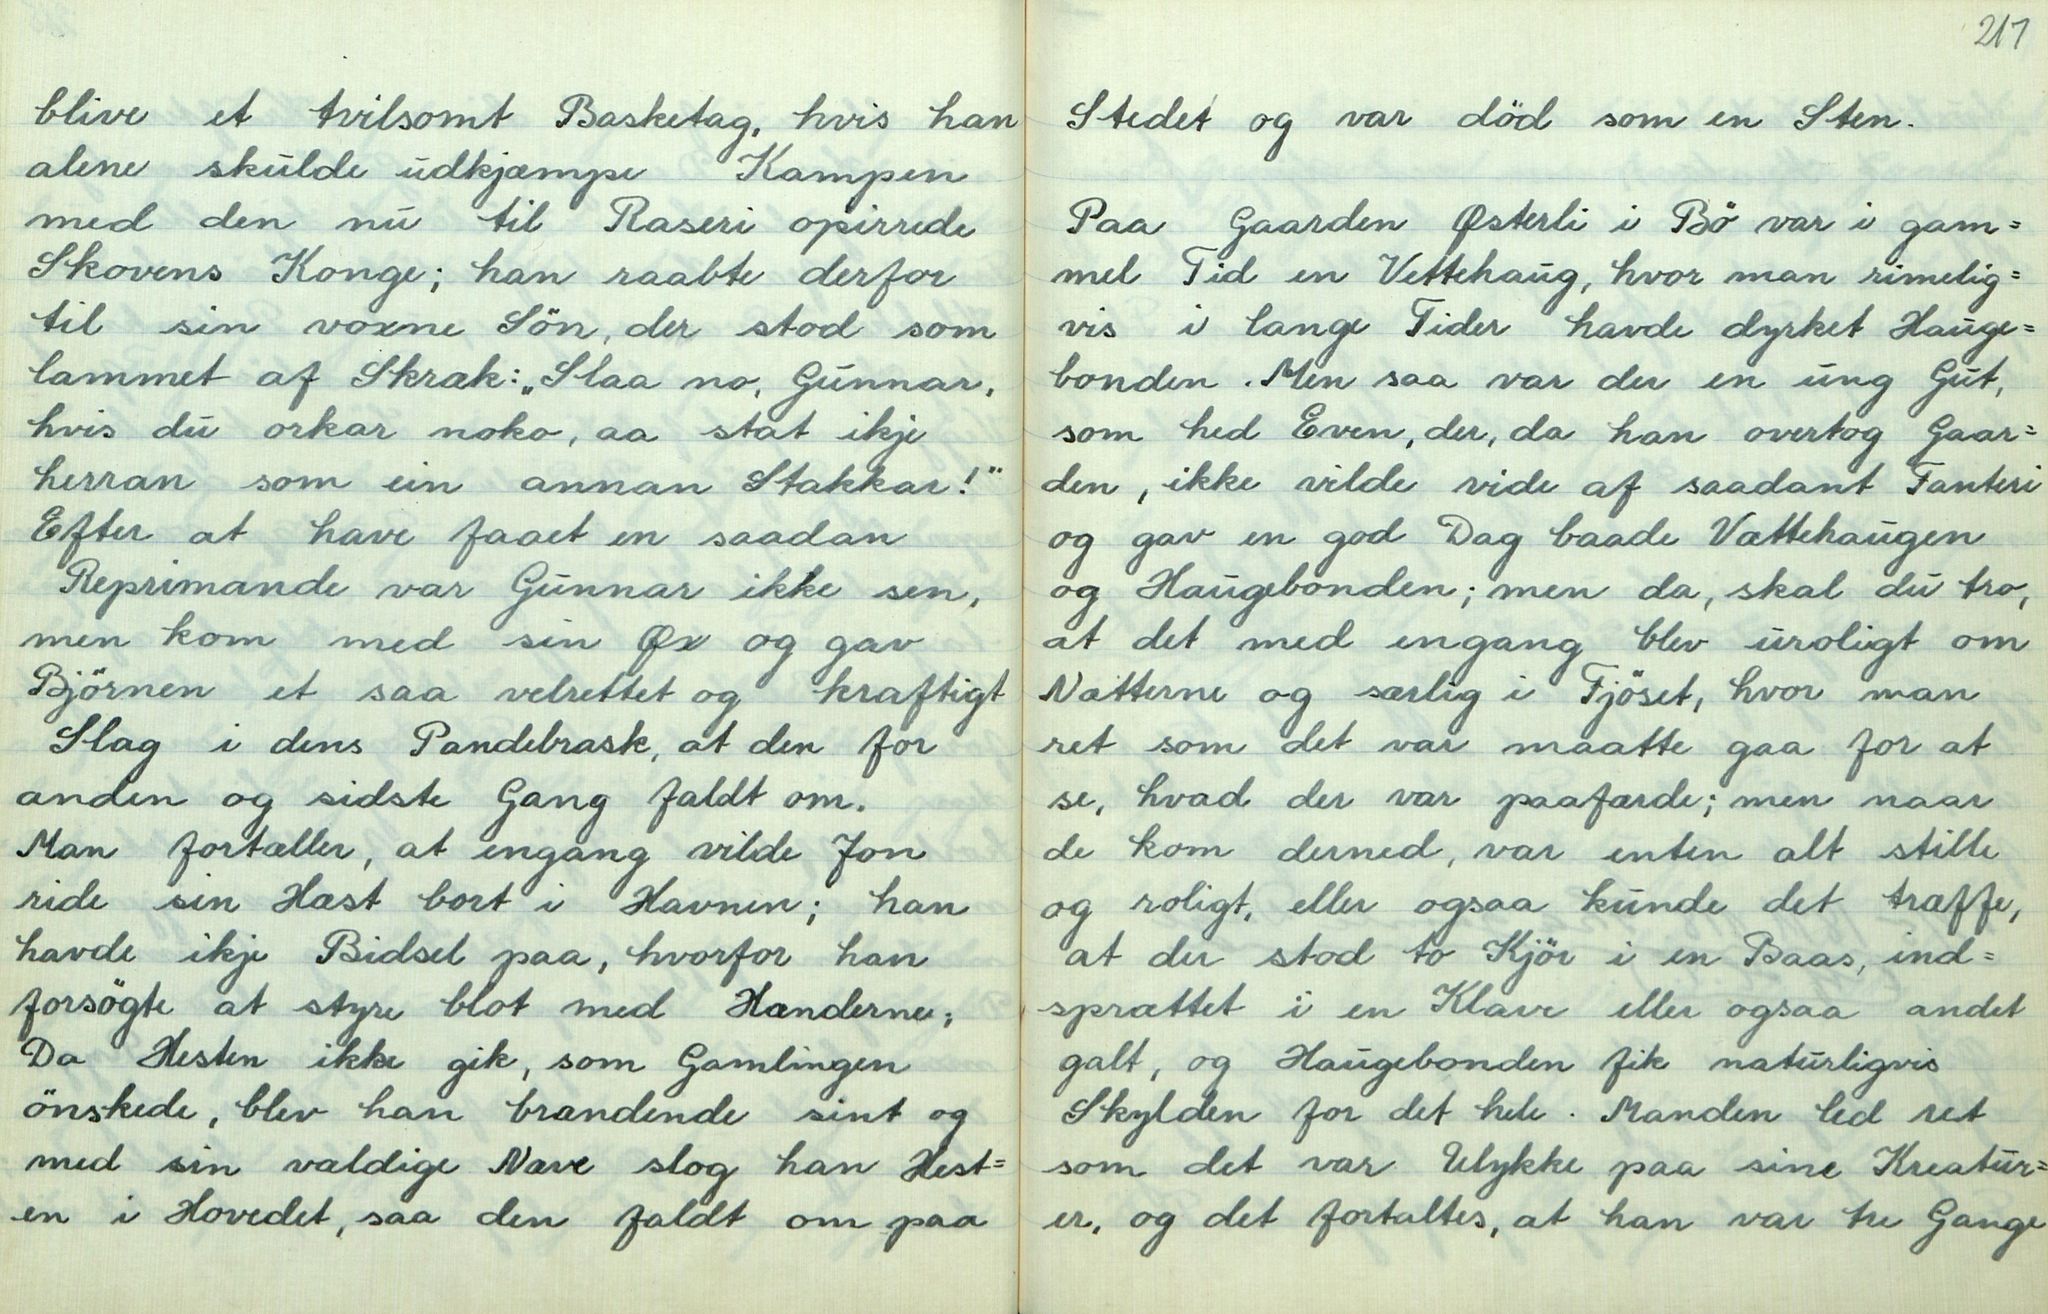 blive et tvilsomt Basketag, hvis han
alene skulde udkjæmpe Kampen
med den nu til Raseri opirrede
Skovens Konge; han raabte derfor
til sin voxne Sön, der stod som
lammet af Skræk: „Slaa no, Gunnar,
hvis du orkar noko, aa stat ikje
herran som ein annan Stakkar!"
Efter at have faaet en saadan
Reprimande var Gunnar ikke sen,
men kom med sin Øx og gav
Björnen et saa velrettet og kraftigt
Slag i dens Pandebrask, at den for
anden og sidste Gang faldt om.
Man fortæller, at engang vilde Jon
ride sin Hæst bort i Havnen; han
havde ikje Bidsel paa, hvorfor han
forsögte at styre blot med Hænderne;
Da Hesten ikke gik, som Gamlingen
önskede, blev han brændende sint og
med sin vældige Næve slog han Hest=
en i Hovedet, saa den faldt om paa
217
Stedet og var död som en Sten.
Paa Gaarden Østerli i Bö var i gam=
mel Tid en Vettehaug, hvor man rimelig=
vis i lange Tider havde dyrket Hauge=
bonden. Men saa var der en ung Gut,
som hed Even, der, da han overtog Gaar=
den, ikke vilde vide af saadant Fanteri
og gav en god Dag baade Vættehaugen
og Haugebonden; men da, skal du tro,
at det med engang blev uroligt om
Nætterne og særlig i Fjöset, hvor man
ret som det var maatte gaa for at
se, hvad der var paafærde; men naar
de kom derned, var enten alt stille
og roligt, eller ogsaa kunde det træffe,
at der stod to Kjör i en Baas, ind=
sprættet i en Klave eller ogsaa andet
galt, og Haugebonden fik naturligvis
Skylden for det hele. Manden led ret
som det var Ulykke paa sine Kreatur=
er, og det fortaltes, at han var tre Gange